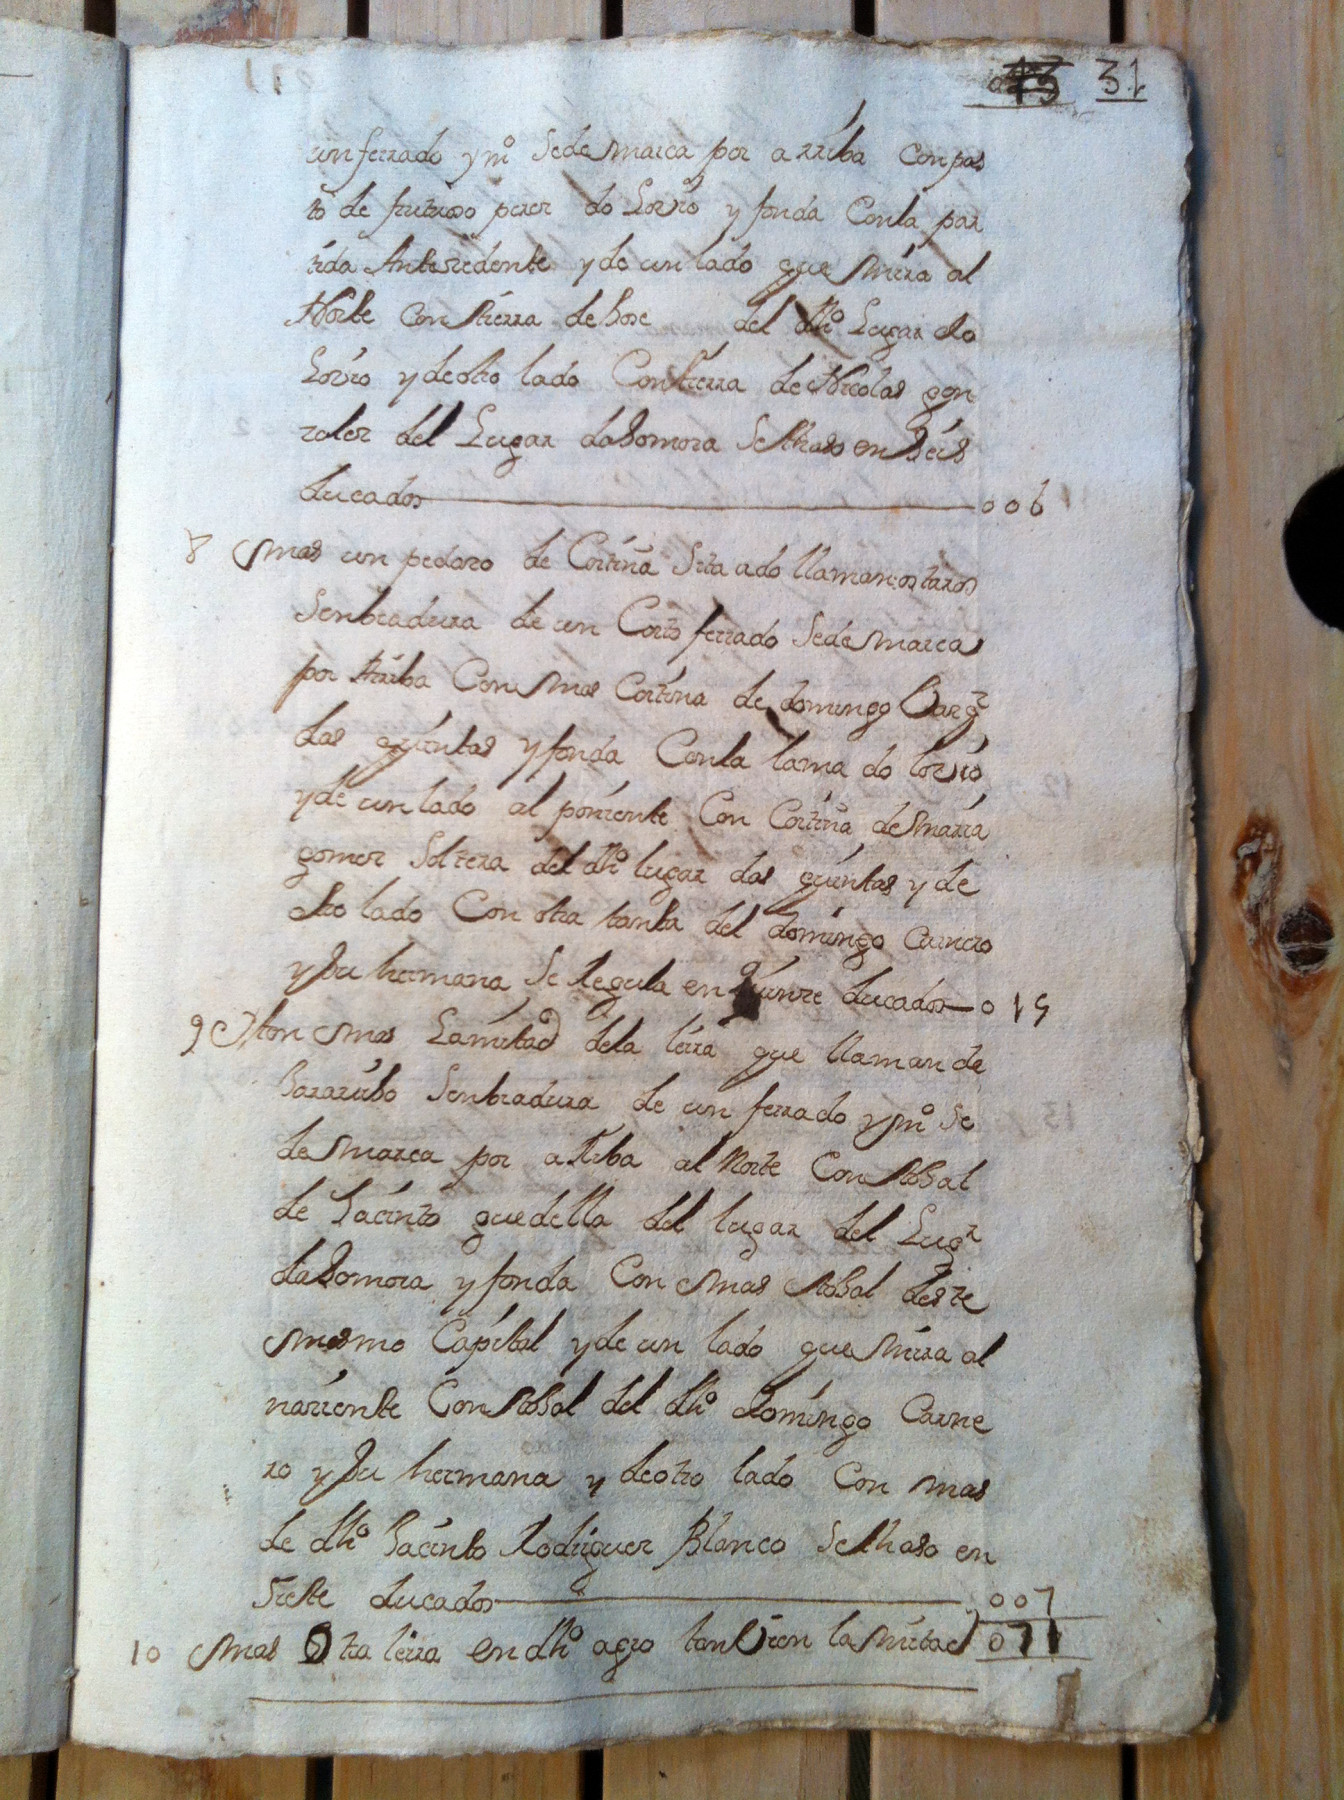 31
un ferrado y mº Se de marca por arriba Con pas
to de frutuoso perez do Lorio y fonda Con la par
tida Antesedente y de un lado que mira al
Norte Con tierra de Jose del dhº Lugar do
Lorio y de otro lado Con tierra de Nicolas gon
zalez del Lugar da Somoza Se thaso en Seis
ducados 006
8 mas un pedazo de Cortiña Sita a do llaman os taxos
Senbradura de un Corto ferrado Se de marca
por Arriba Con mas Cortiña de domingo
das quintas y fonda Con la lama do lorio
y de un lado al poniente Con Cortiña de maria
gomez Soltera del dhº lugar das quintas y de
otro lado Con otra tanta del domingo Carnero
y Su hermana Se Regula en quinze ducados 015
9 Iten mas La mitad de la tierra que llaman de
Senbradura de un ferrado y mº Se
de marca por aRiba al Norte Con Rosal
de Jacinto quedella del lugar del Lugr
da Somoza y fonda Con mas Rosal deste
mesmo Capital y de un lado que mira al
nariente Con Rosal del dhº domingo Carne
ro y Su hermana y de otro lado Con mas
de dhº Jacinto Rodriguez Blanco Se thaso en
Siete ducados 007
10 mas Otra tierra en dhº agro tanbien la mitad 071